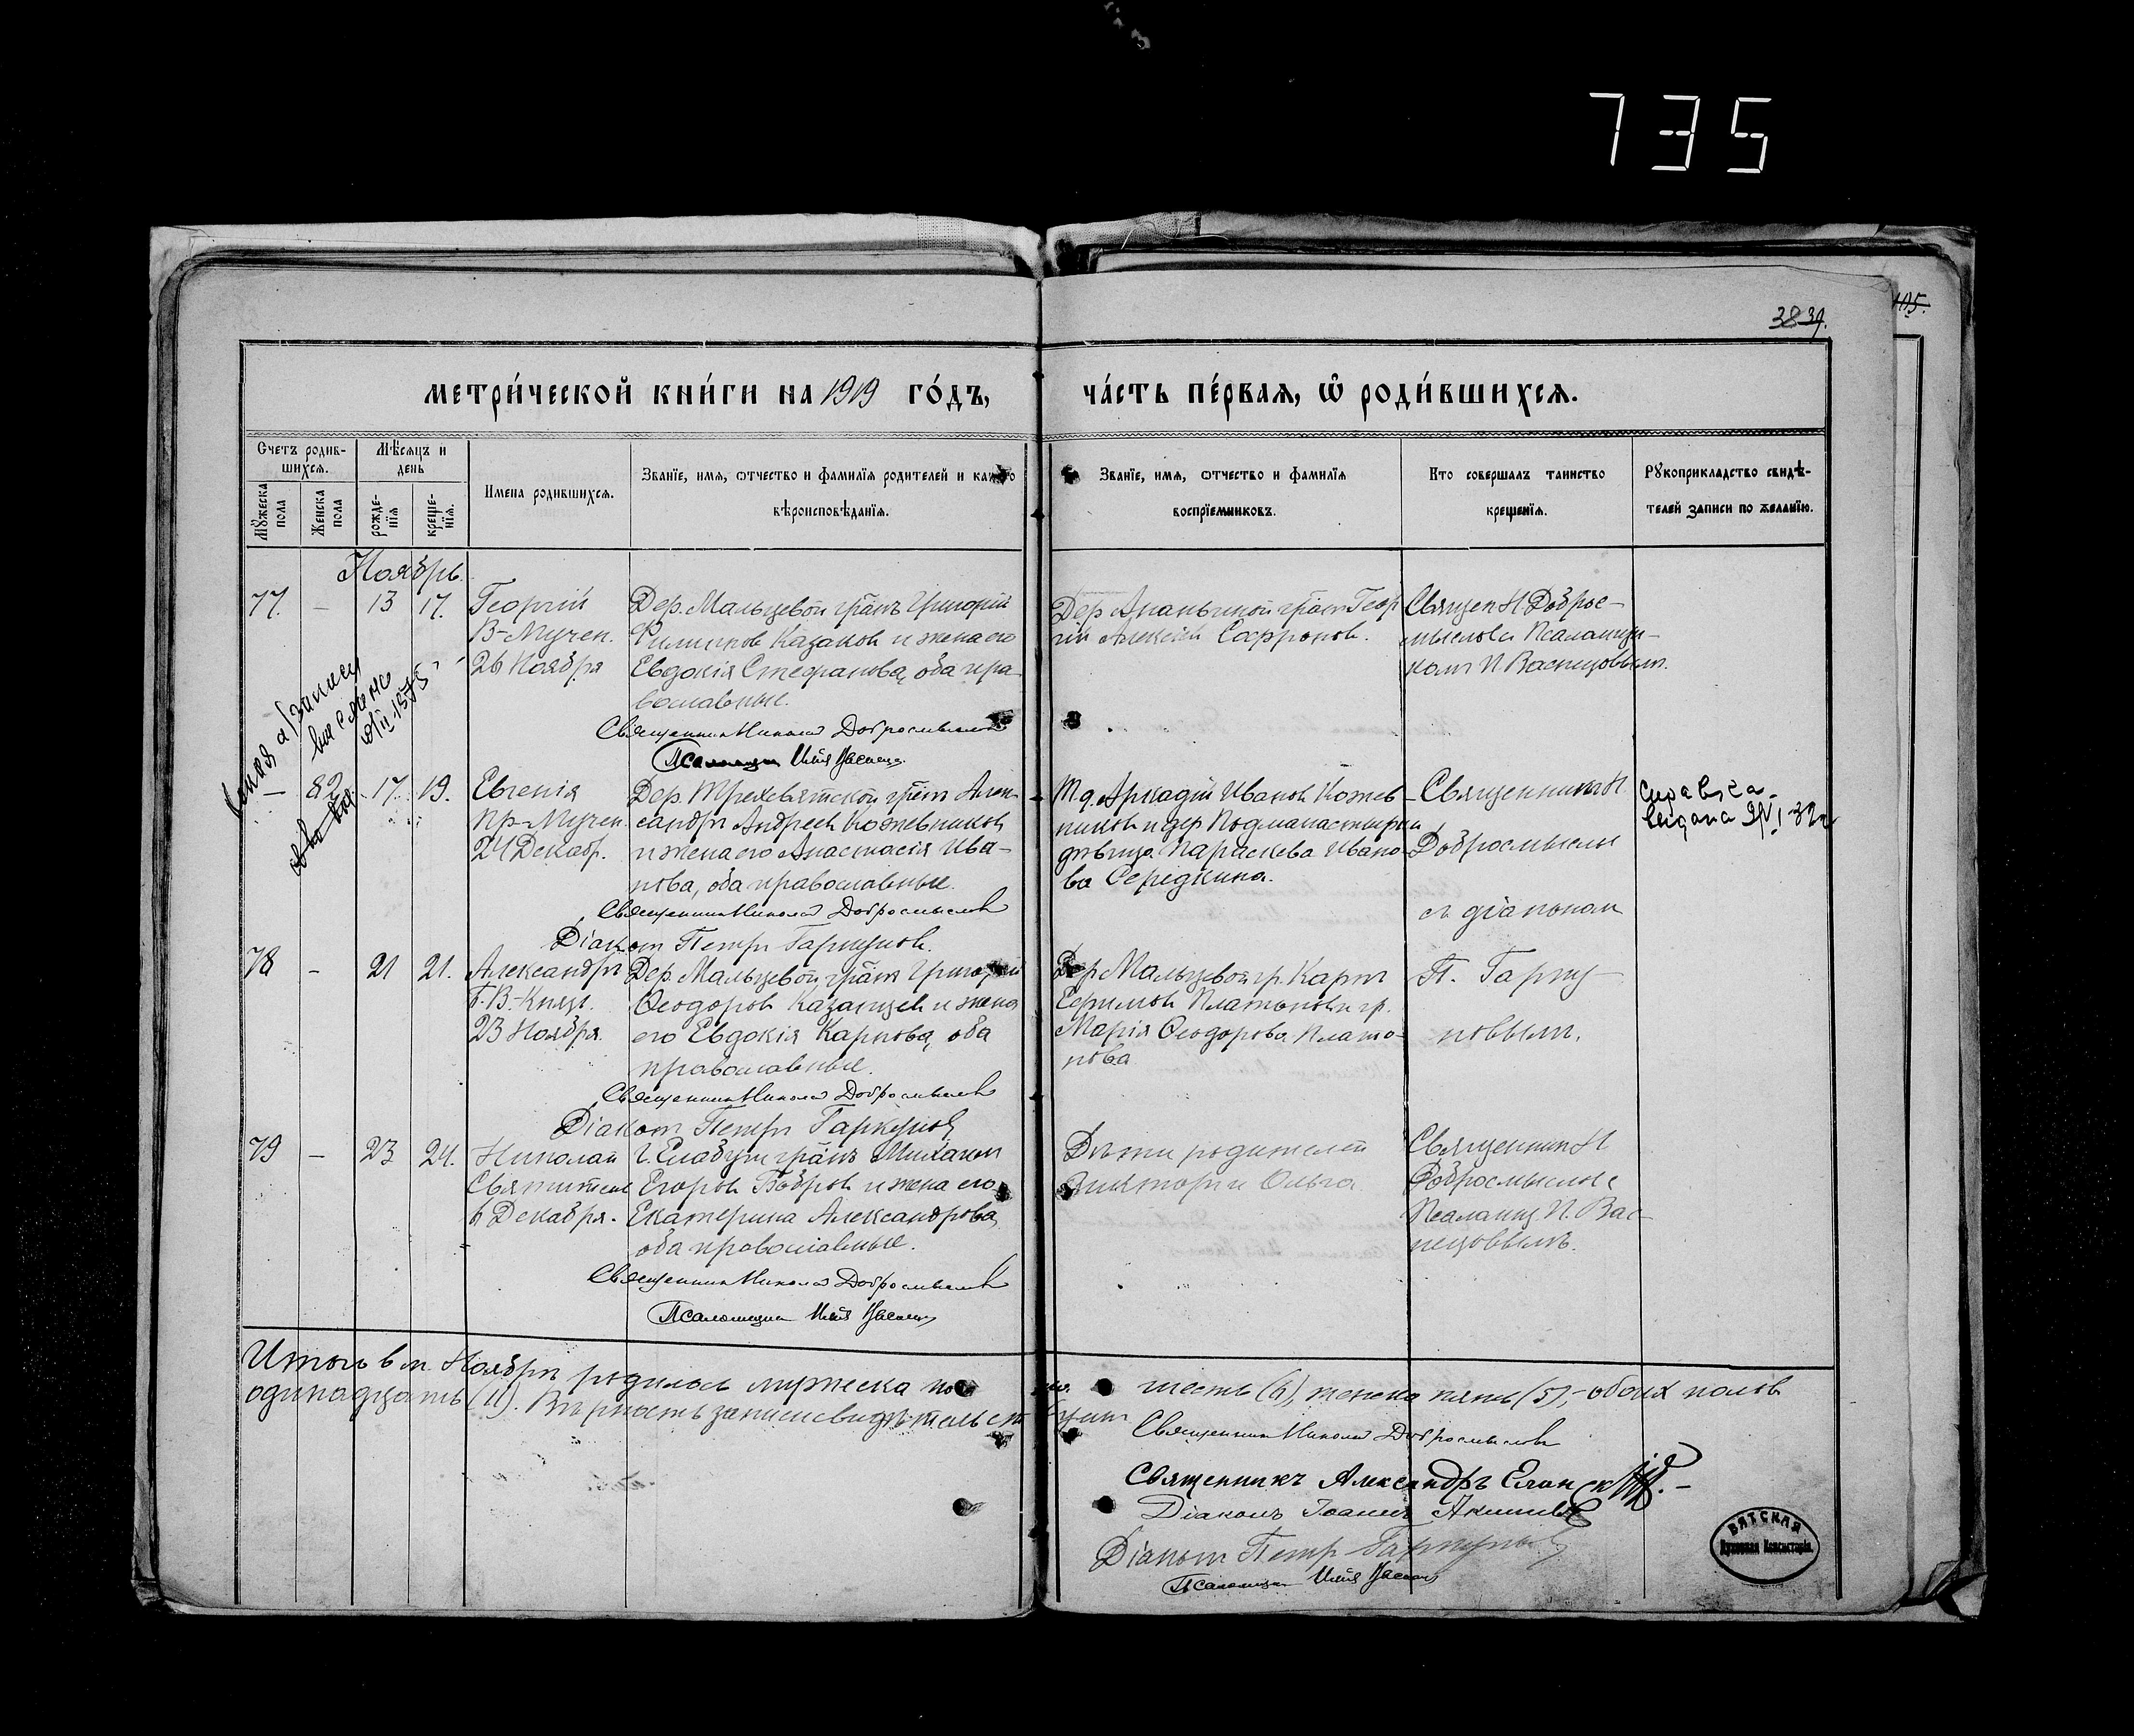 735
105.
38 39.
МЕТРИ́ЧЕСКОЙ КНИ́ГИ НА 1919 ГО́ДЪ,
ЧА́СТЬ ПЕ́РВАЯ, Ѡ РОДИ́ВШИХСЯ.
Счетъ родив-
шихся.
Мꙋжеска пола
Женска пола
Мѣсяцъ и
день
рожде-
нїя
креще-
нїя.
Имена родившихся.
Званїе, имя, ѿчество и фамилїя родителей и какого
вѣроисповѣданїя.
Званїе, имя, ѿчество и фамилїя
воспрїемниковъ.
Кто совершалъ таинство
крещенїя.
Рꙋкоприкладство свидѣ-
телей записи по желанїю.
Ноябрь.
77. – 13 17.
Георгій
В-Мучен.
26 Ноября
Дер. Мальцевой гр-нъ Григорій
Филиппов Казаков и жена его
Евдокія Стефанова, оба пра-
вославные.
Священник Николай Добросмыслов
Псаломщик Илья
Дер. Ананьиной гр-нъ Геор
гій Алексіев Сафронов.
Священ Н. Доброс-
мыслов с Псаломщи-
ком И. Васнецовым.
– 82 17. 19.
Евгенія
Пр-Мучен
24 Декабр.
Дер. Трехсвятской гр-нъ Алек-
сандръ Андреев Кожевников
и жена его Анастасія Ива-
нова, оба православные.
Священник Николай Добросмыслов
Діакон Петръ Гаркунов.
Т. д. Аркадій Иванов Кожев
ников и дер Подмонастырки
дѣвица Параскева Ивано-
ва Середкина.
Священник Н.
Добросмыслов
съ діаконом
П. Гарку-
новым.
Справка
выдана
78 – 21 21.
Александръ
Б. В.-Князь.
23 Ноября.
Дер. Мальцевой гр-нъ Григорій
Ѳеодоров Казанцев и жена
его Евдокія Карпова, оба
православные.
Священник Николай Добросмыслов
Діакон Петръ Гаркунов
Дер. Мальцевой гр. Карпъ
Ефимов Платонов и гр.
Марія Ѳеодорова Плато-
нова
79 – 23 24.
Николай
Святитель
6 Декабря.
Г. Елабуги гр-нъ Михаил
Егоров Бобров и жена его
Екатерина Александрова,
оба православные.
Священник Николай Добросмыслов
Псаломщик Илья
Дѣти родителей
Викторъ и Ольга
Священник Н
Добросмыслов с
Псаломщ. И. Вас-
нецовымъ.
Итого в м. Ноябрѣ родилось мужеска пола шесть (6), женска пять (5), – обоих полов
одинадцать (11). Вѣрность записи свидѣтельствуют
Священник Николай Добросмыслов
Священникъ Александръ Елонскій. –
Діаконъ Іоаннъ
Діакон Петр Гаркунов
Псаломщик Илья
ВЯТСКАЯ
Духовная Консисторія.